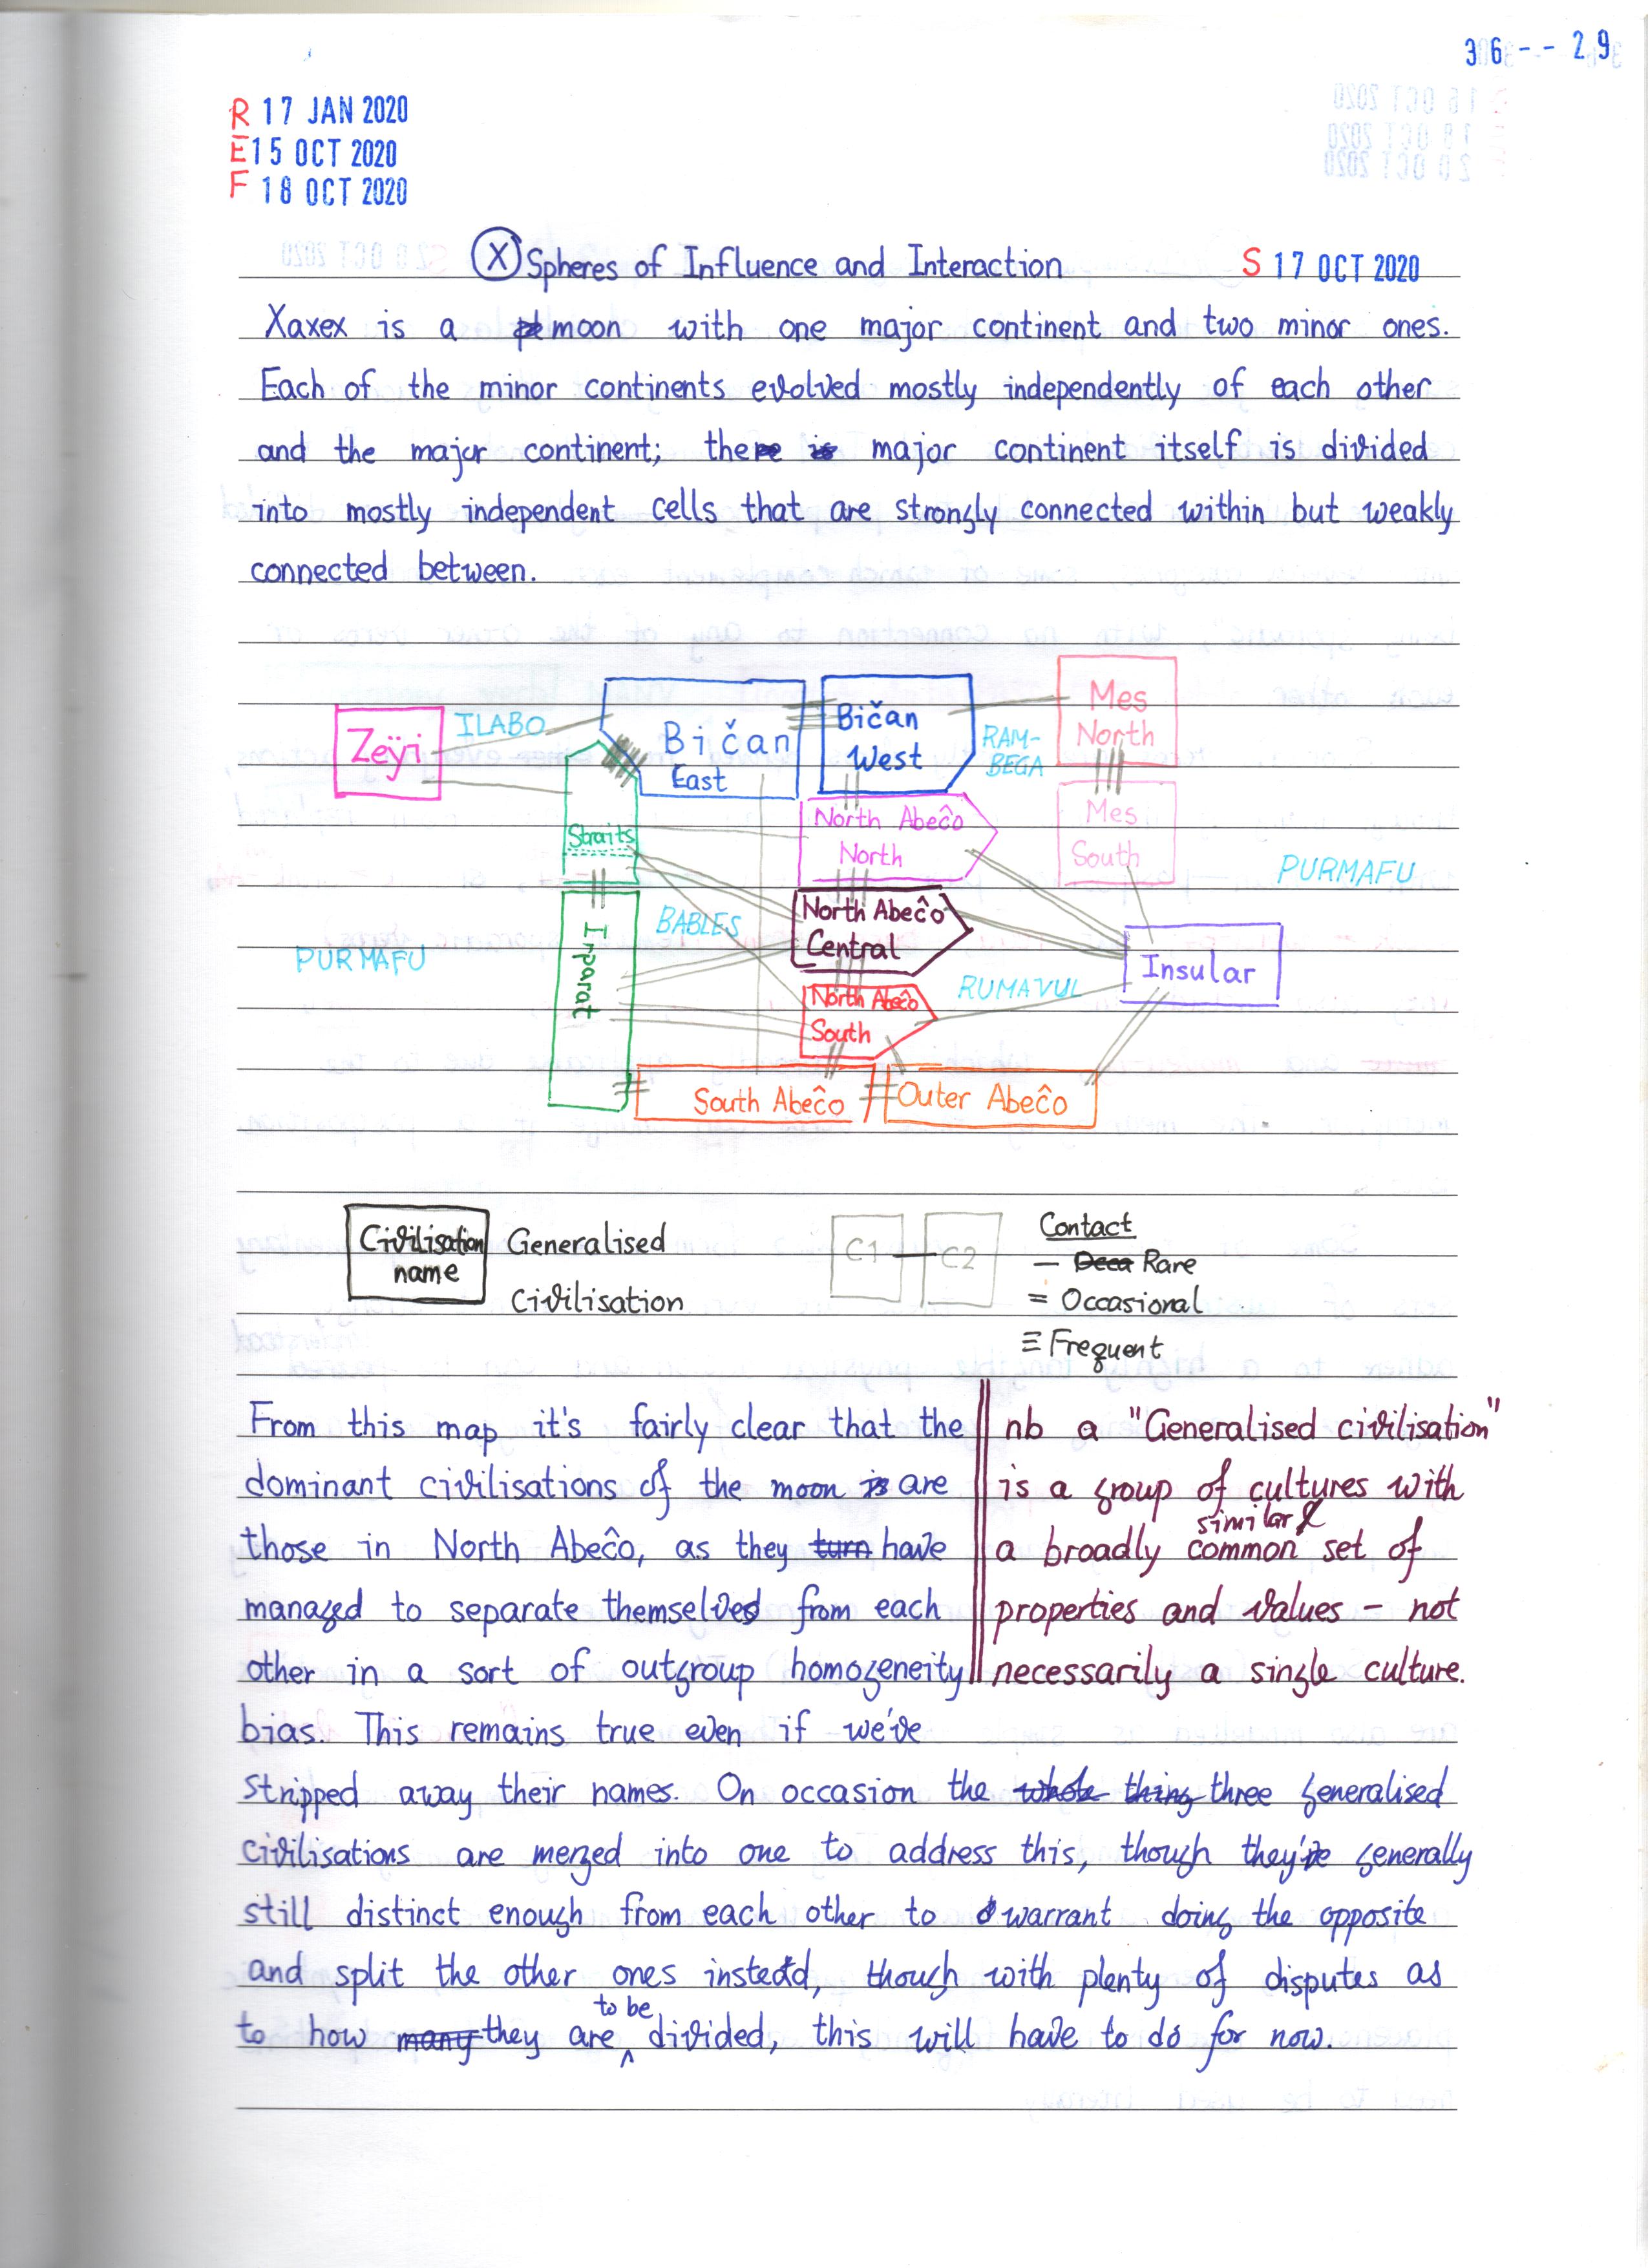 36--29
R 17 JAN 2020
E 15 OCT 2020
F 18 OCT 2020
X Spheres of Influence and Interaction S 17 OCT 2020
Xaxex is a moon with one major continent and two minor ones.
Each of the minor continents evolved mostly independently of each other
and the major continent; the major continent itself is divided
into mostly independent cells that are strongly connected within but weakly
connected between.
Zeÿri
ILABO
Bičan
East
Bičan
West
RAM-
BEGA
Mes
North
Straits
North Abeĉo
North
Mes
South
PURMAFU
PURMAFU
Imparat
BABLES
North Abeĉo
Central
Insular
North Abeĉo
South
RUMAVUL
South Abeĉo
Outer Abeĉo
Civilisation
name
Generalised
Civilisation
C1 — C2
Contact
— Rare
= Occasional
≡ Frequent
From this map it's fairly clear that the
dominant civilisations of the moon are
those in North Abeĉo, as they have
managed to separate themselves from each
other in a sort of outgroup homogeneity
bias. This remains true even if we've
nb a "Generalised civilisation"
is a group of cultures with
a broadly common similar set of
properties and values - not
necessarily a single culture.
stripped away their names. On occasion the three generalised
civilisations are merged into one to address this, though they're generally
still distinct enough from each other to warrant doing the opposite
and split the other ones instead, though with plenty of disputes as
to how they are to be divided, this will have to do for now.